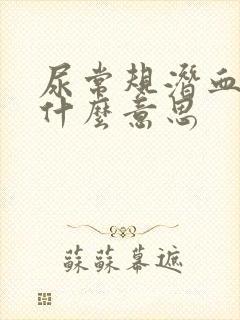 尿常規潛血
什麼意思
蘇蘇幕遮